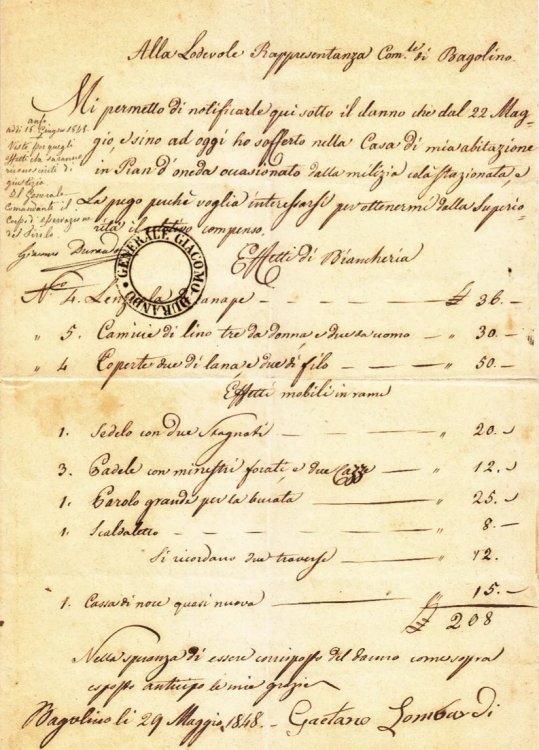 Alla Lodevole Rappresentanza Com.le di Bagolino.
Mi permetto di notificarle qui sotto il danno che dal 22 Mag-
gio, e sino ad oggi ho sofferto nella Casa di mia abitazione
in Pian d'oneda occasionato dalla milizia colà stazionata, e
La pego perchè voglia interessarsi per ottenermi dalla Superio-
rità il compenso.
Anfo
adi 15 Giugno 1848
Visto per quegli
effetti che saranno
di
giustizia
Il Generale
Comandante il
Corpo d'operazione
del Tirolo
Giacomo Durando
GENERALE GIACOMO DURANDO
Effetti di Biancheria
N.o 4. Lenzuola Canape — 36.-
" 5. Camicie di lino tre da donna e due da uomo — " 30.-
" 4 Coperte due di lana e due di filo — " 50.-
Effetti mobili in rame
1. Sedelo con due Stagnati — " 20.-
3. Padele con ministri forati, e due Cazze — " 12.-
1. Parolo grande per la bucata — " 25.-
1. Scaldaletto — " 8.-
Si ricordano due traverse — " 12.
1. Cassa di noce quasi nuova — " 15.-
208
Nella speranza di essere corrisposto del danno come sopra
esposto anticipo le mie grazie
Bagolino li 29 Maggio 1848.- Gaetano Lombardi